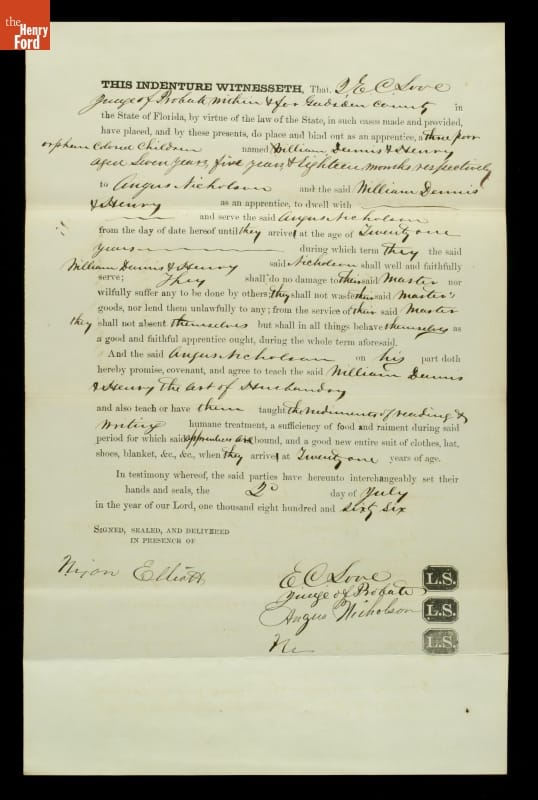 the
Henry
Ford
THIS INDENTURE WITNESSETH, That, I, E C Love
Judge of Probate within & for Gadsden County in
the State of Florida, by virtue of the law of the State, in such cases made and provided,
have placed, and by these presents, do place and bind out as an apprentice, a three poor
orphan Colored Children named William Dennis & Henry
aged Seven years, five years, & Eighteen months, respectively
to Angus Nicholson and the said William Dennis
& Henry as an apprentice, to dwell with
and serve the said Angus Nicholson
from the day of date hereof until they arrive at the age of Twenty one
years during which term they the said
William Dennis & Henry said Nicholson shall well and faithfully
serve; They shall do no damage to their said Master nor
wilfully suffer any to be done by others; they shall not waste their said Master's
goods, nor lend them unlawfully to any; from the service of their said Master
they shall not absent themselves but shall in all things behave themselves as
a good and faithful apprentice ought, during the whole term aforesaid.
And the said Angus Nicholson on his part doth
hereby promise, covenant, and agree to teach the said William Dennis
& Henry the art of Husbandry
and also teach or have them taught the rudiments of reading &
writing humane treatment, a sufficiency of food and raiment during said
period for which said apprentices are bound, and a good new entire suit of clothes, hat,
shoes, blanket, &c., &c., when they arrive at Twenty one years of age.
In testimony whereof, the said parties have hereunto interchangeably set their
hands and seals, the 2d day of July
in the year of our Lord, one thousand eight hundred and sixty six
SIGNED, SEALED, AND DELIVERED
IN PRESENCE OF
Nixon Elliott
E C Love L.S.
Judge of Probate
Angus Nicholson L.S.
Ni L.S.